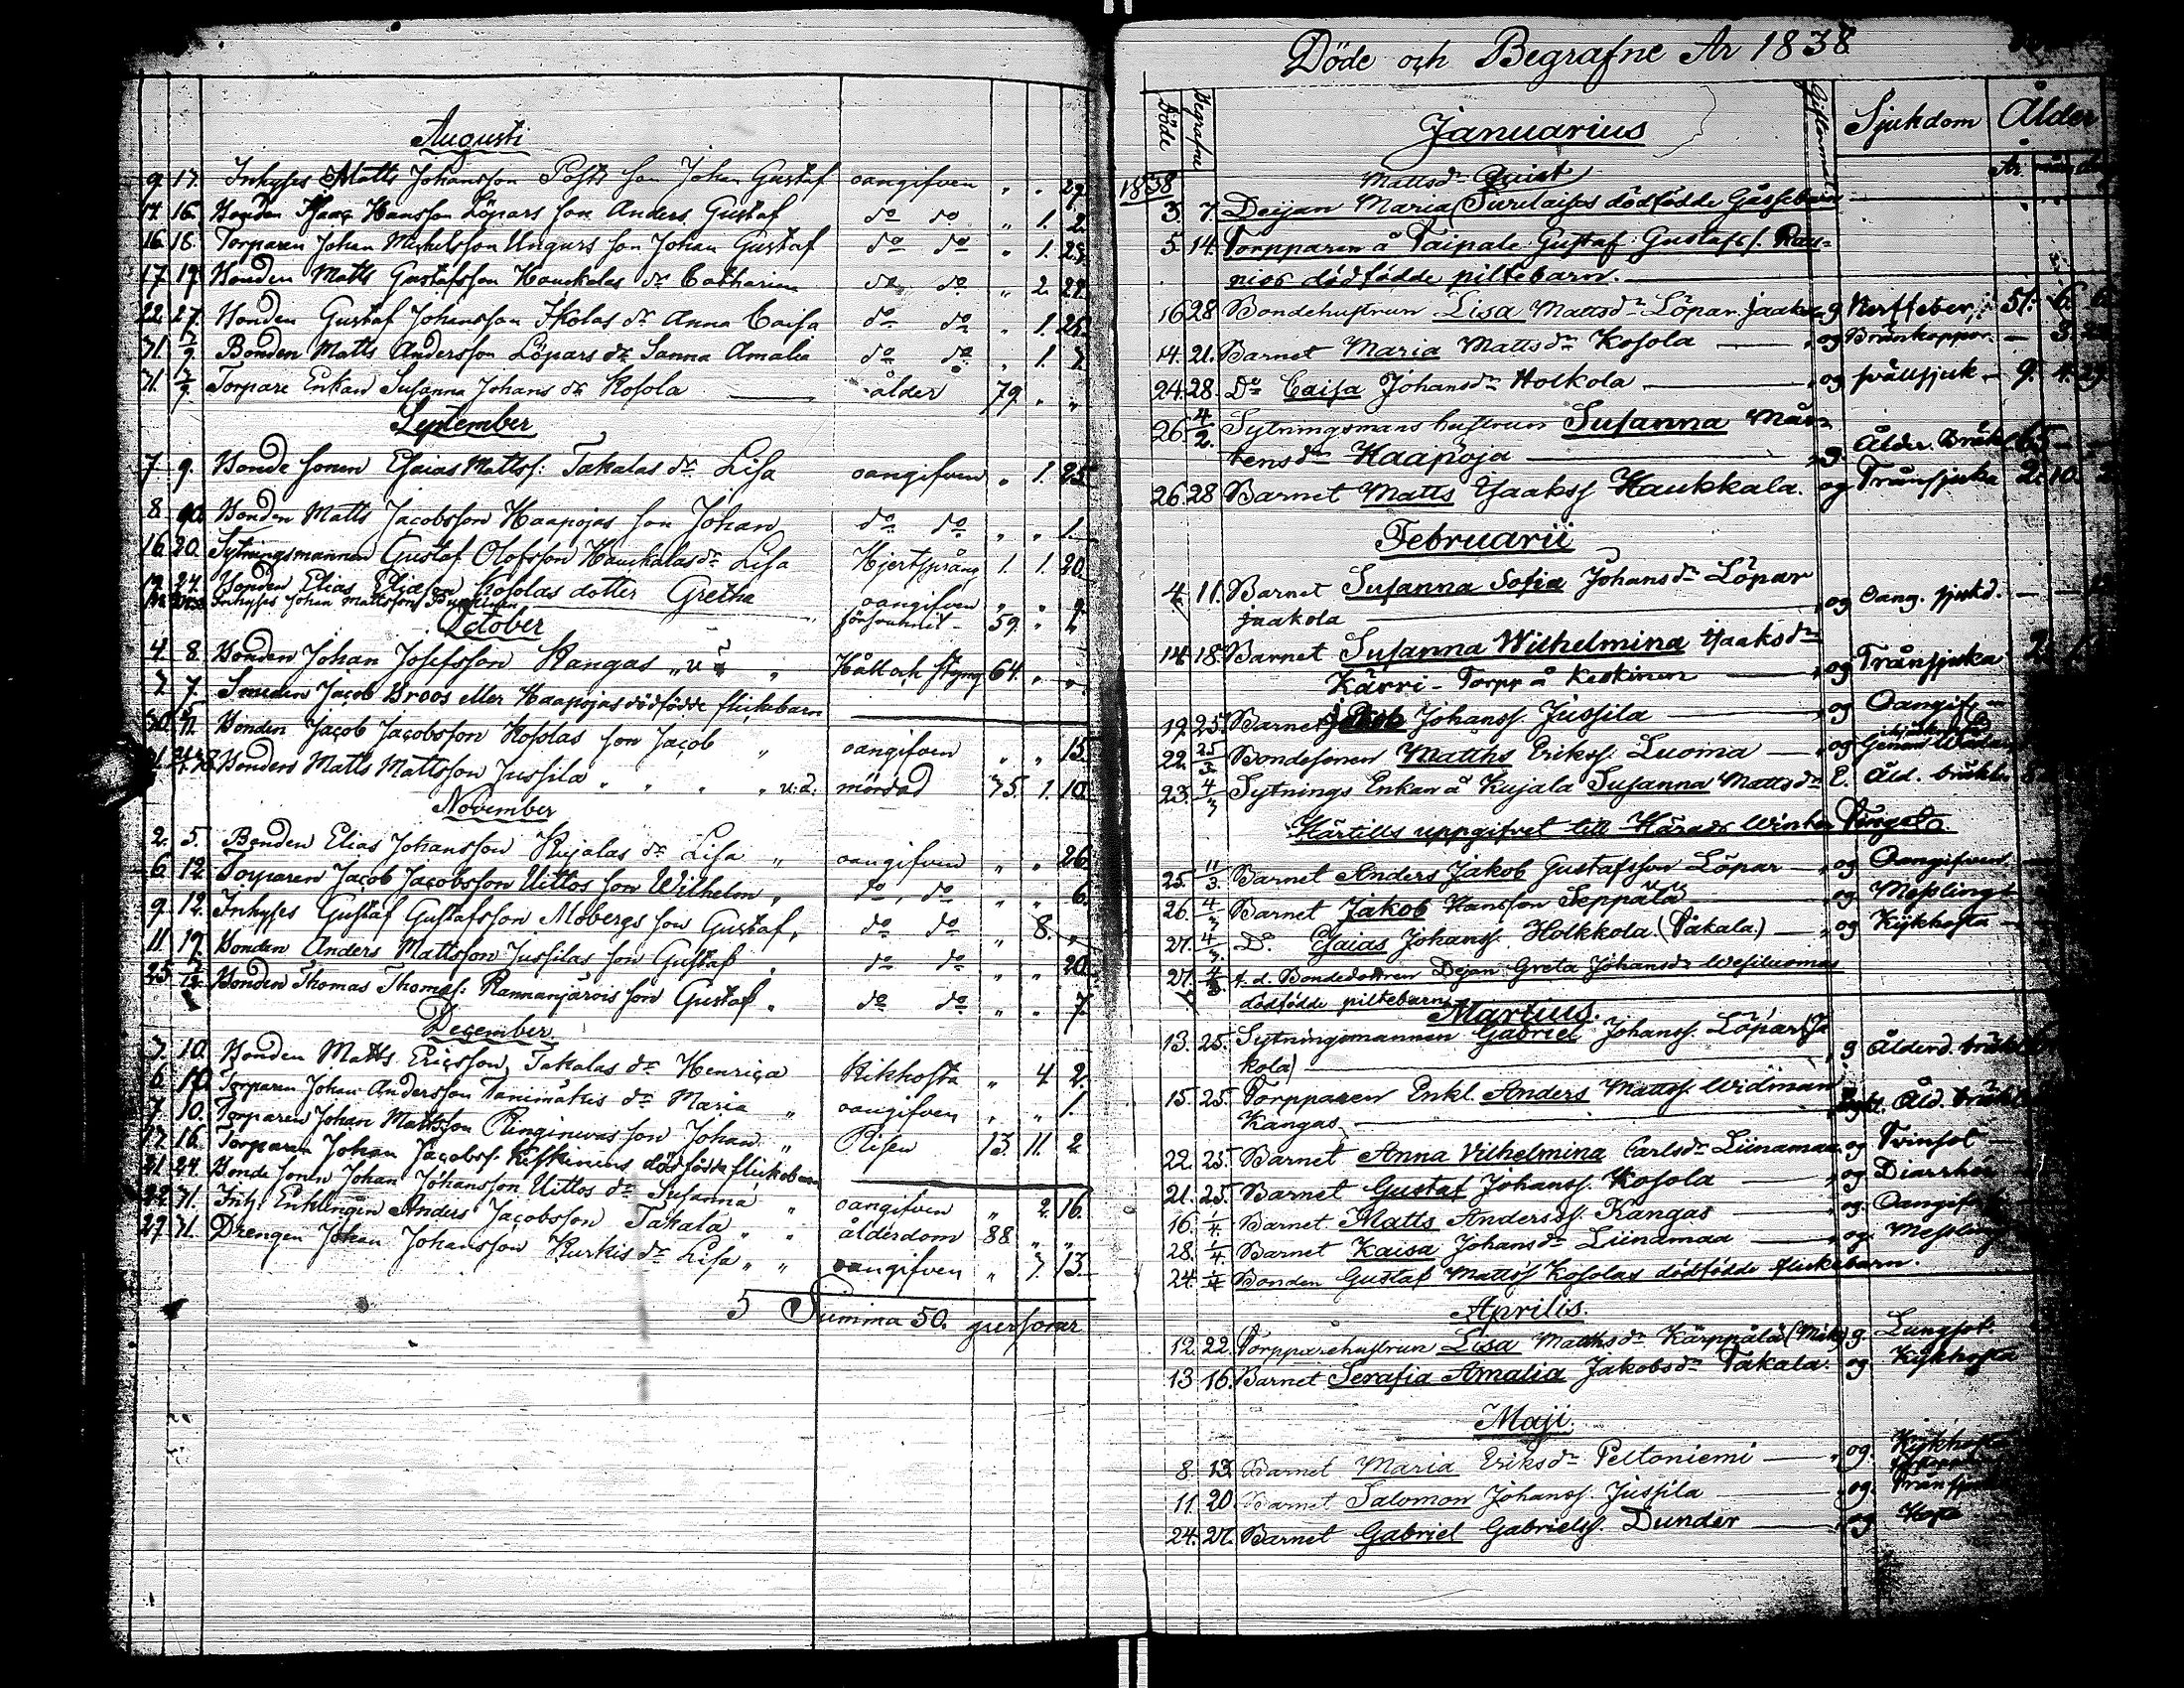 Augusti
9. 17. Inhyses Matts Johansson Posts son Johan Gustaf oangifven " " 29.
14. 16. Bonden Isaac Hansson Löpars son Anders Gustaf do do " 1. 2.
16. 18. Torparen Johan Michelsson Ungars son Johan Gustaf do do " 1. 23.
17. 19. Bonden Matts Gustafsson Haukalas dr Catharina do do " 2. 22.
22. 27. Bonden Gustaf Johansson Ikolas dr Anna Caisa do do " 1. 26.
31. Bonden Matts Andersson Löpars dr Sanna Amalia do do " 1. 7.
31. Torpare Enkan Susanna Johans dr Kosola ålder 79 " "
September
7. 9. Bonde sonen Esaias Mattss: Takalas dr Lisa oangifven " 1. 25.
8. Bonden Matts Jacobsson Haapojas son Johan do do " " 1.
16. 20. Sytningsmannen Gustaf Olofsson Haukalas dr Lisa Hjertsprång 1. 1. 20.
24. Bonden Elias Eliasson Kosolas dotter Gretha oangifven " " 9.
Inhyses Johan Mattsson 59.
October
4. 8. Bonden Johan Josefsson Kangas Håll och styng 64. " "
7. 7. Smeden Jacob Broos eller Haapojas dödfödde flickebarn
30. Bonden Jacob Jacobsson Kosolas son Jacob " oangifven " " 15.
Bonden Matts Mattsson Jussila " " " " mördad 35. 1. 10.
November
2. 5. Bonden Elias Johansson Kujalas dr Lisa " oangifven " " 26.
6. 12. Torparen Jacob Jacobsson Uittos son Wilhelm " do do " " 6.
9. 12. Inhyses Gustaf Gustafsson Mobergs son Gustaf " do do " 8. "
11. 19. Bonden Anders Mattsson Jussilas son Gustaf " do do " " 20.
25. 2/12 Bonden Thomas Thomass: Rannanjärvis son Gustaf " do do " " 7.
December
3. 10. Bonden Matts Ericsson Takalas dr Henrica Kikhosta " 4. 2.
6. 10. Torparen Johan Andersson Tanimäkis dr Maria " oangifven " " 1.
7. 10. Torparen Johan Mattsson Ringinevas son Johan " Risen 13. 11. 2
17. 16. Torparen Johan Jacobss. Keskinens dödfödde flickebarn
21. 24. Bonde sonen Johan Johansson Uittos dr Susanna " oangifven " 2. 16.
22. 31. Inh: Enklingen Anders Jacobsson Takala " " ålderdom 88 " "
27. 31. Drengen Johan Johansson Kurkis dr Lisa " " oangifven " 7. 13.
5 Summa 50. personer
Döde och Begrafne År 1838
Döde Begrafne Januarius Sjukdom Ålder
År
1838 Mattsdr Quist
3. 7. Deijan Maria dödfödde Gåssebarn
5. 14. Torpparen å Taipale Gustaf Gustafss.
nios dödfödde piltebarn.
16. 28 Bondehustrun Lisa Mattsdr Löpar g Nerffeber 51. 6. 6.
14. 21. Barnet Maria Mattsdr Kosola og 3.
24. 28. Do Caisa Johansdr Holkola og 9. 4. 29.
26. 4/2. Sytningsmans hustrun Susanna Mår-
tensdr Haapoja g. Ålder. Bräkl. 65
26. 28 Barnet Matts Isaakss Haukkala. og Trånsjuka 2. 10. 2
Februarii
4. 11. Barnet Susanna Sofia Johansdr Löpar
jaakola og Oang. sjukd.
14. 18. Barnet Susanna Wilhelmina Isaaksdr
Kärri - Torpp å Keskinen og Trånsjuka
19. 25. Barnet Johanss. Jussila og Oangif
22. 25/3 Bondesonen Matths Erikss: Luoma og
23. 4/3 Sytnings Enkan å Kujala Susanna Mattsdr E. Åld. bräkl.
Härtills uppgifvet till Härads Winter Tinget.
25. 11/3. Barnet Anders Jakob Gustafsson Löpar og Oangifven
26. 4/3 Barnet Jakob Hansson Seppälä og Messling
27. 4/3. Do. Esaias Johanss. Holkkola (Takala) og Kykhosta
27. 4/3 f.d. Bondedottren Dejan Greta Johansdr Wesiluomas
dödfödde piltebarn.
Martius.
13. 25. Sytningsmannen Gabriel Johanss. Löpar (Ja
kola) g Ålderd. bräkl
15. 25. Torpparen Enkl. Anders Mattss. Widman
Kangas Åld. bräkl
22. 25. Barnet Anna Vilhelmina Carlsdr Liinamaa og Tvinsot
21. 25. Barnet Gustaf Johanss. Kosola og Diarrhée
16. 1/4. Barnet Matts Anderss. Kangas og. Oangif
28. 1/4. Barnet Kaisa Johansdr Liinamaa og. Messling
24. 1/4 Bonden Gustaf Mattss Kosolas dödfödde flickebarn.
Aprilis.
12. 22. Torpparehustrun Lisa Matthsdr Kärppälä (Mik) g. Lungsot.
13 16. Barnet Serafia Amalia Jakobsdr Takala. og Kykhosta
Maji.
8. 13. Barnet Maria Eriksdr Peltoniemi og. Kykhosta
11. 20. Barnet Salomon Johanss. Jussila og. Trånsj
24. 27. Barnet Gabriel Gabrielss. Dunder og